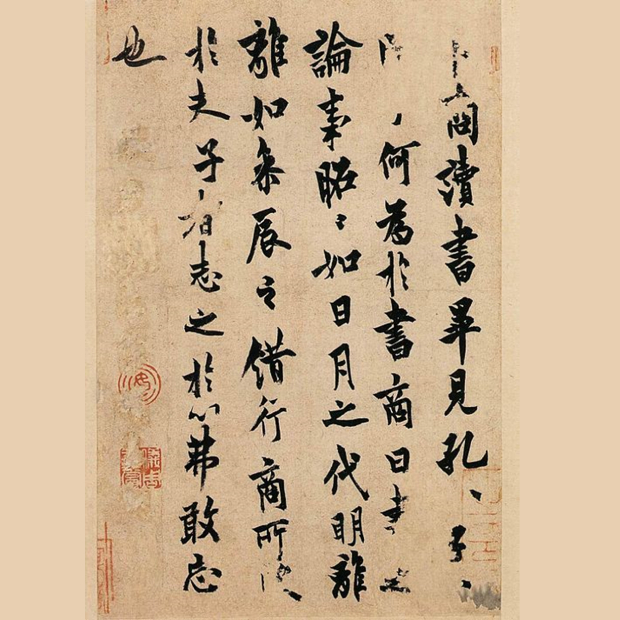 商讀書畢見孔〻子〻
何為於書商曰書之
論事昭〻如日月之代明離
離如参辰之錯行商所
於夫子者志之於心弗敢忘
也